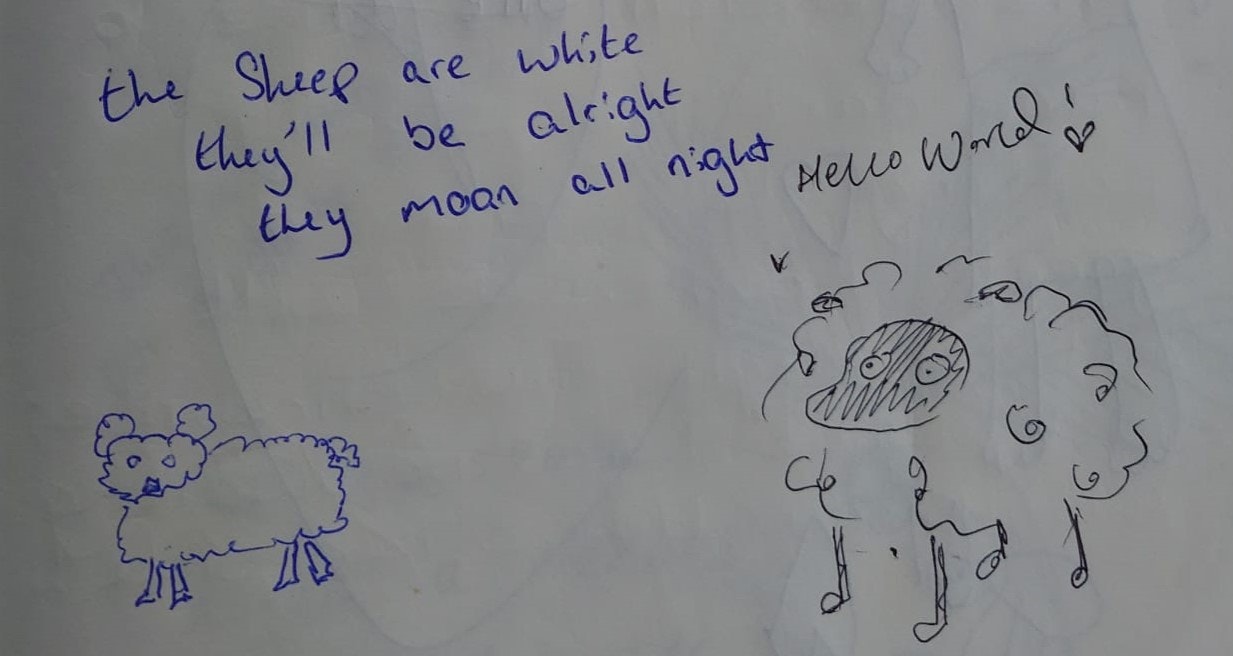 the Sheep are white
they'll be alright
they moan all night
Hello World!